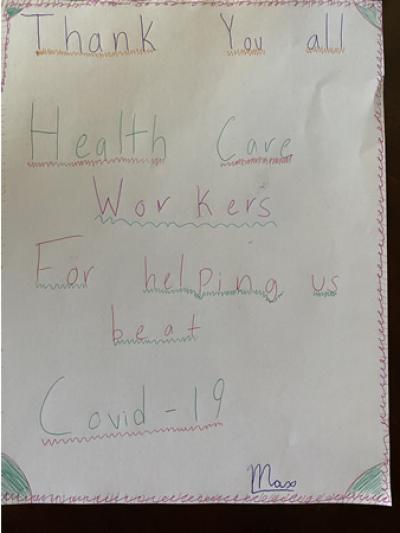 Thank You all
Health Care
Workers
For helping us
beat
Covid-19
Max